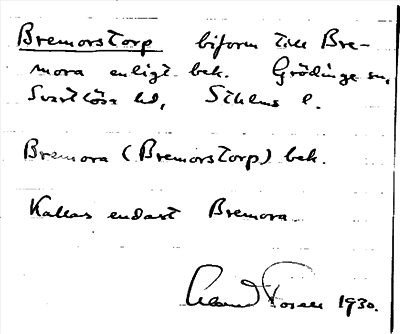 Bremorstorp biform till Bre-
mora enligt bek. Grödinge sn,
Svartlösa hd, Sthlms l.
Bremora (Bremorstorp) bek.
Kallas endast Bremora
1930.